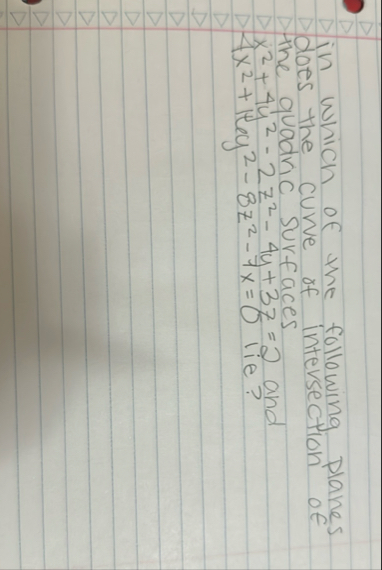 in which of the following planes
does the curve of intersection of
the quadric surfaces
x² + 4y² - 2z² - 4y + 3z = 2 and
4x² + 16y² - 8z² - 7x = 0 lie?